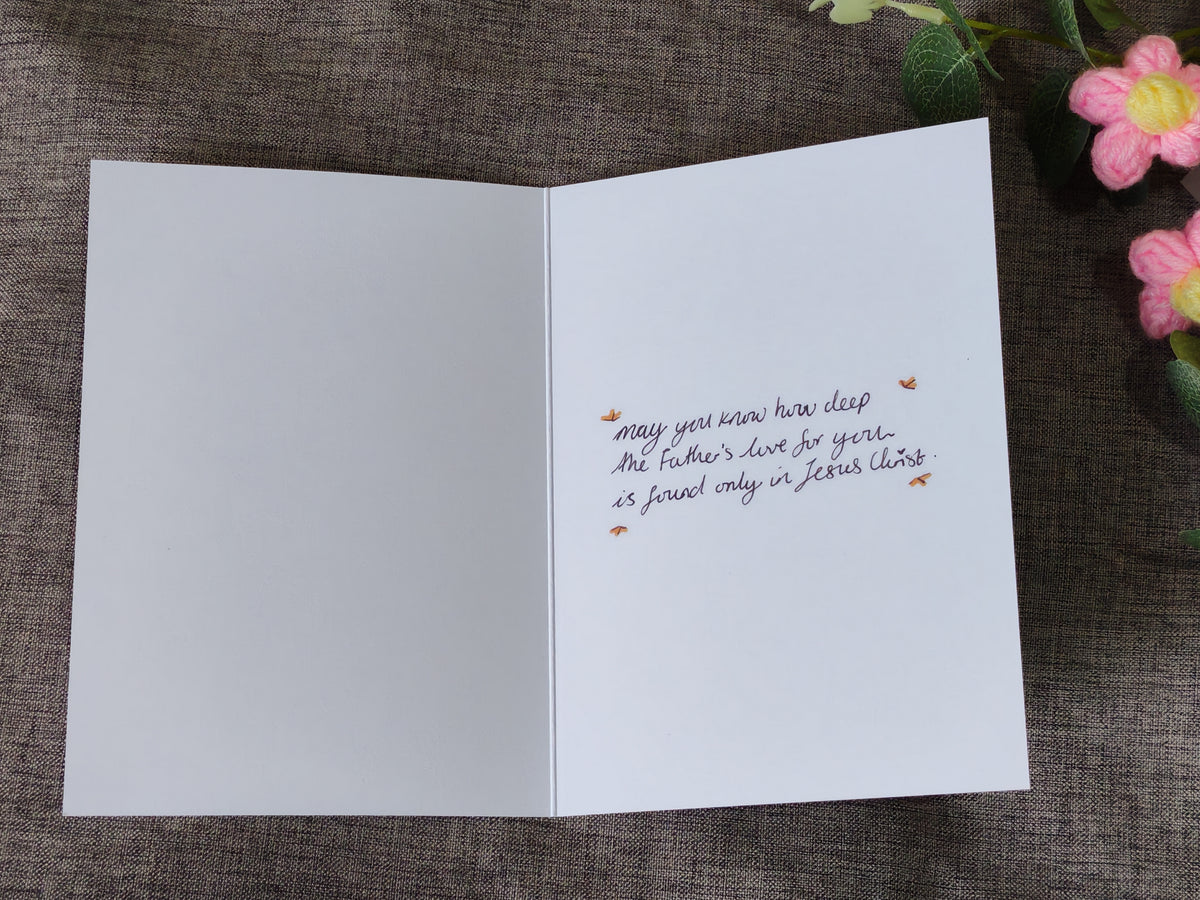 may you know how deep
the Father's love for you
is found only in Jesus Christ.